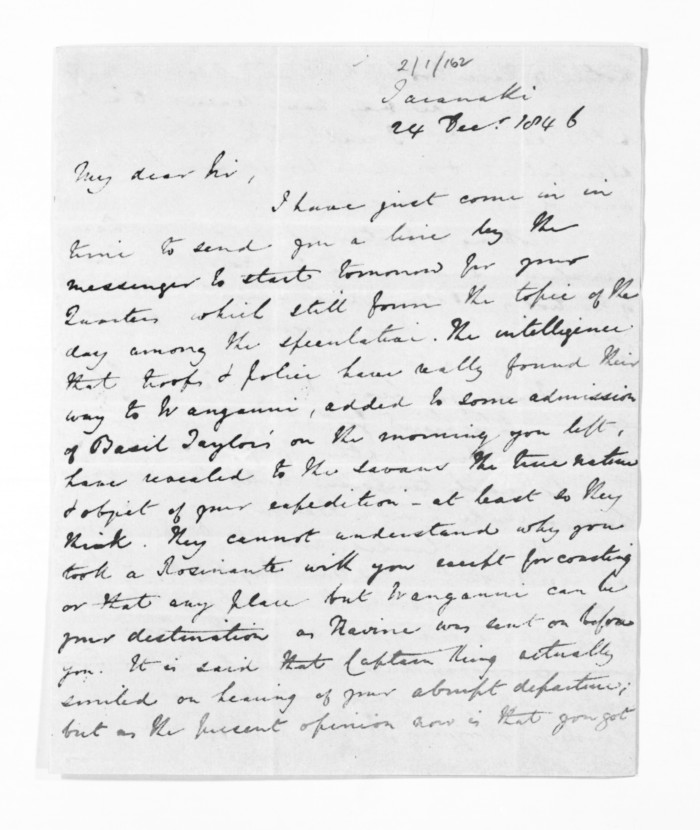 2/1/162
Taranaki
24 Decr. 1846
My dear Sir,
I have just come in in
time to send you a line by the
messenger to start tomorrow for your
Quarters which still form the topic of the
day among the speculative. The intelligence
that troops & police have really found their
way to Wanganui, added to some admission
of Basil Taylor's on the morning you left,
have revealed to the savans the true nature
& object of your expedition - at least so they
think. They cannot understand why you
took a Rosinante with you except for coasting
or that any place but Wanganui can be
your destination as was sent on before
you. It is said that Captain King actually
smiled on hearing of your abrupt departure;
but as the present opinion now is that you got